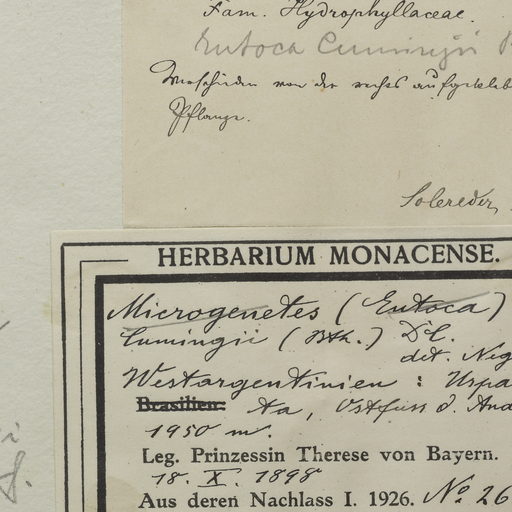 Fam. Hydrophyllaceae.
Eutoca Cumingii
Verschieden von der rechts aufgekleb
Pflanze.
Solereder.
HERBARIUM MONACENSE.
Microgenetes (Eutoca)
Cumingii (Bth.) DC.
det. Neg
Westargentinien: Uspa
Brasilien: ta, Ostfuss d. And
1950 m.
Leg. Prinzessin Therese von Bayern.
18. X. 1898
Aus deren Nachlass I. 1926. No 26